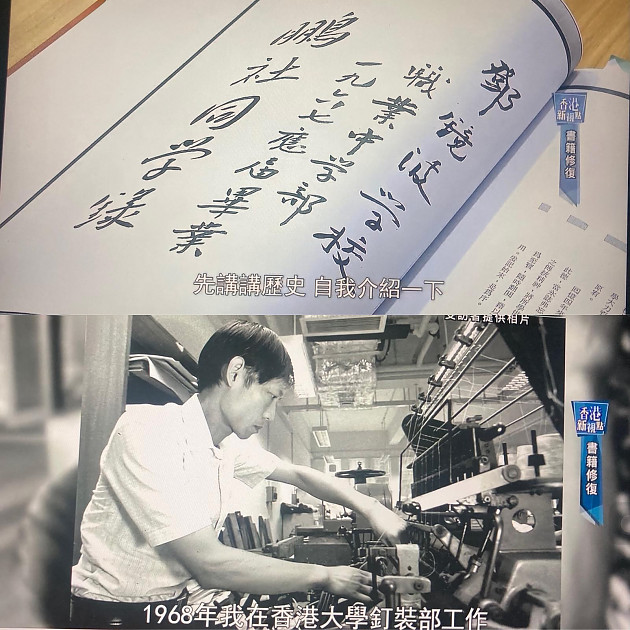 鄧鏡波学校
職業中学部
一九六七應届畢業
鵬社同学錄
香港
新視點
書籍修復
先講講歷史 自我介紹一下
受訪者提供相片
香港
新視點
書籍修復
1968年我在香港大學釘裝部工作